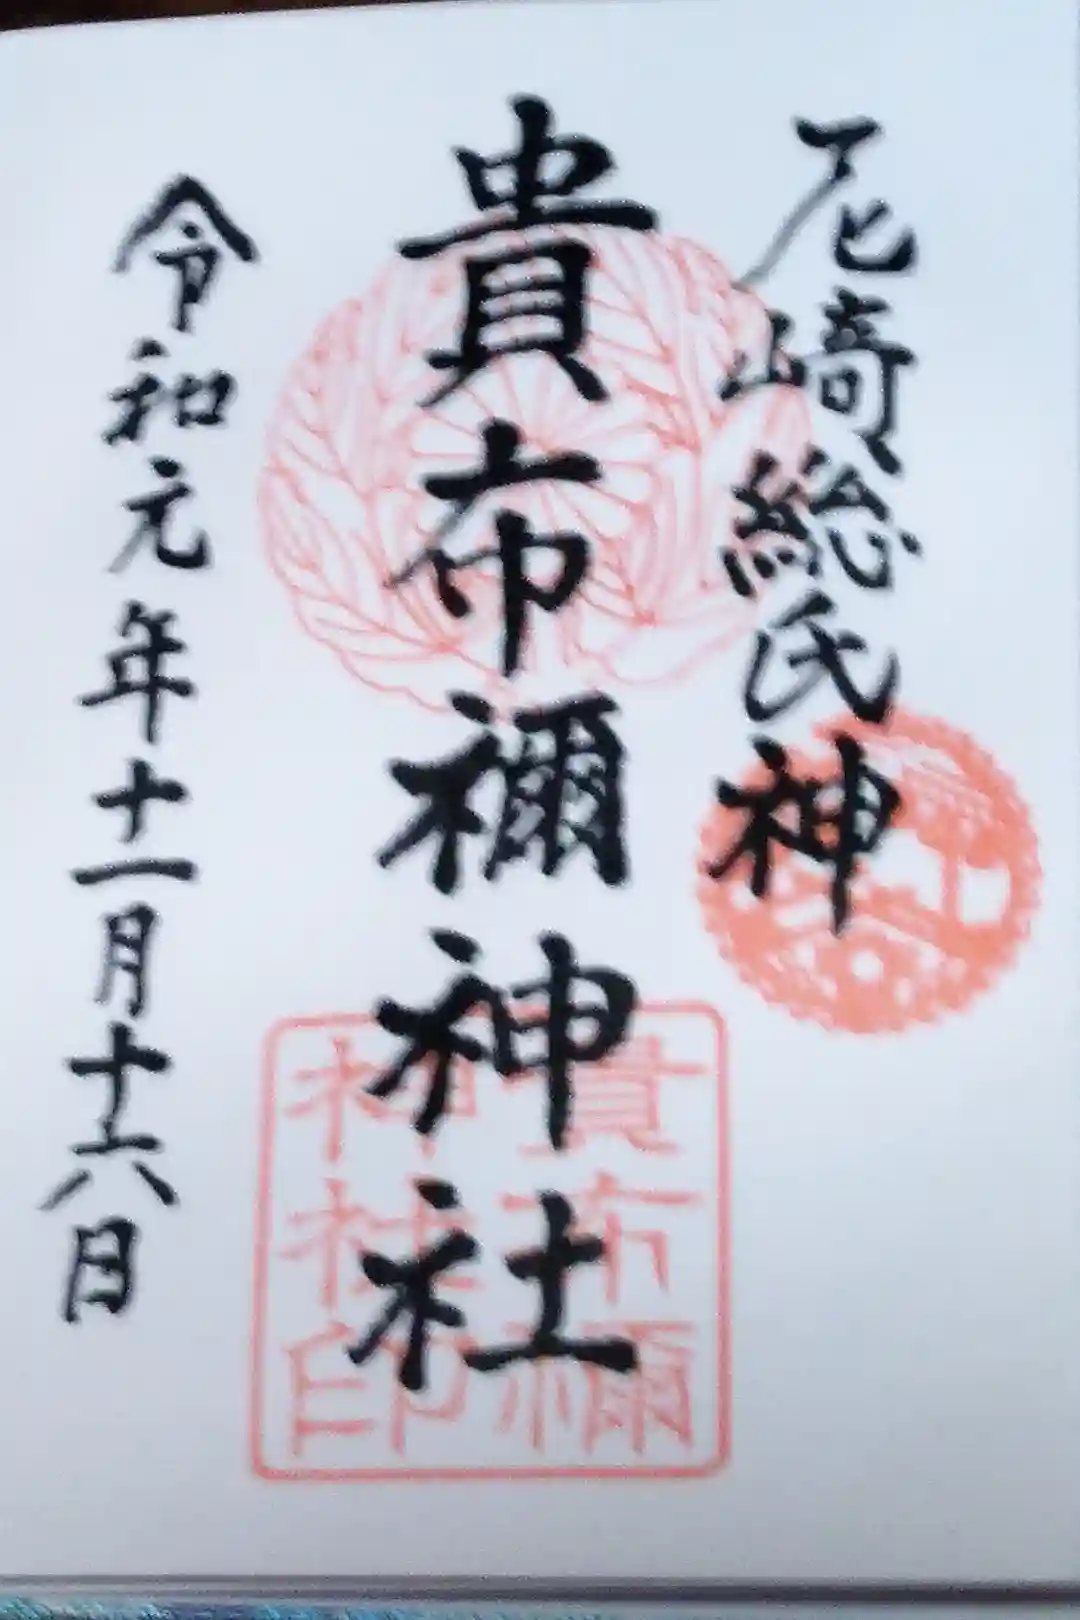 尼崎総氏神
貴布禰神社
令和元年十一月十六日
貴布禰
神社印